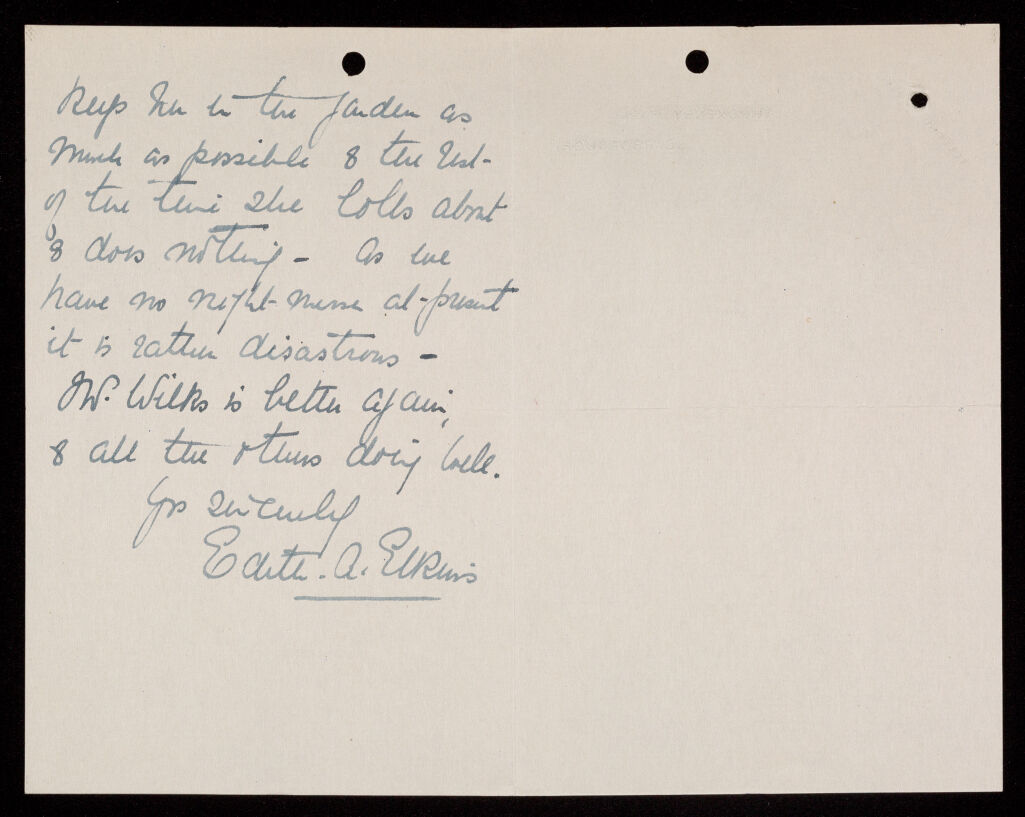 keep her in the garden as
much as possible & the rest
of the time she lolls about
& does nothing - as we
have no night nurse at present
it is rather disastrous -
Wilks is better again,
& all the others doing well.
Yrs sincerely
Edith. A. Elkins